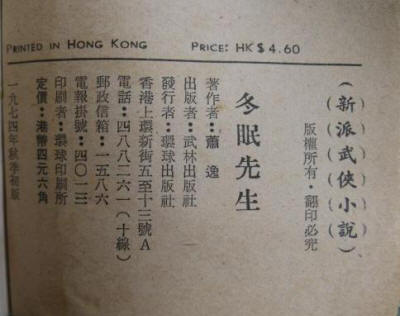 PRINTED IN HONG KONG
PRICE: HK $ 4.60
（新派武俠小說）
版權所有・翻印必究
冬眠先生
著作者：蕭 逸
出版者：武林出版社
發行者：環球出版社
香港上環新街五至十三號A
電話：四八八二六一（十線）
郵政信箱：一五八六
電報掛號：四〇二三
印刷者：環球印刷所
定價：港幣四元六角
一九七四年秋季初版